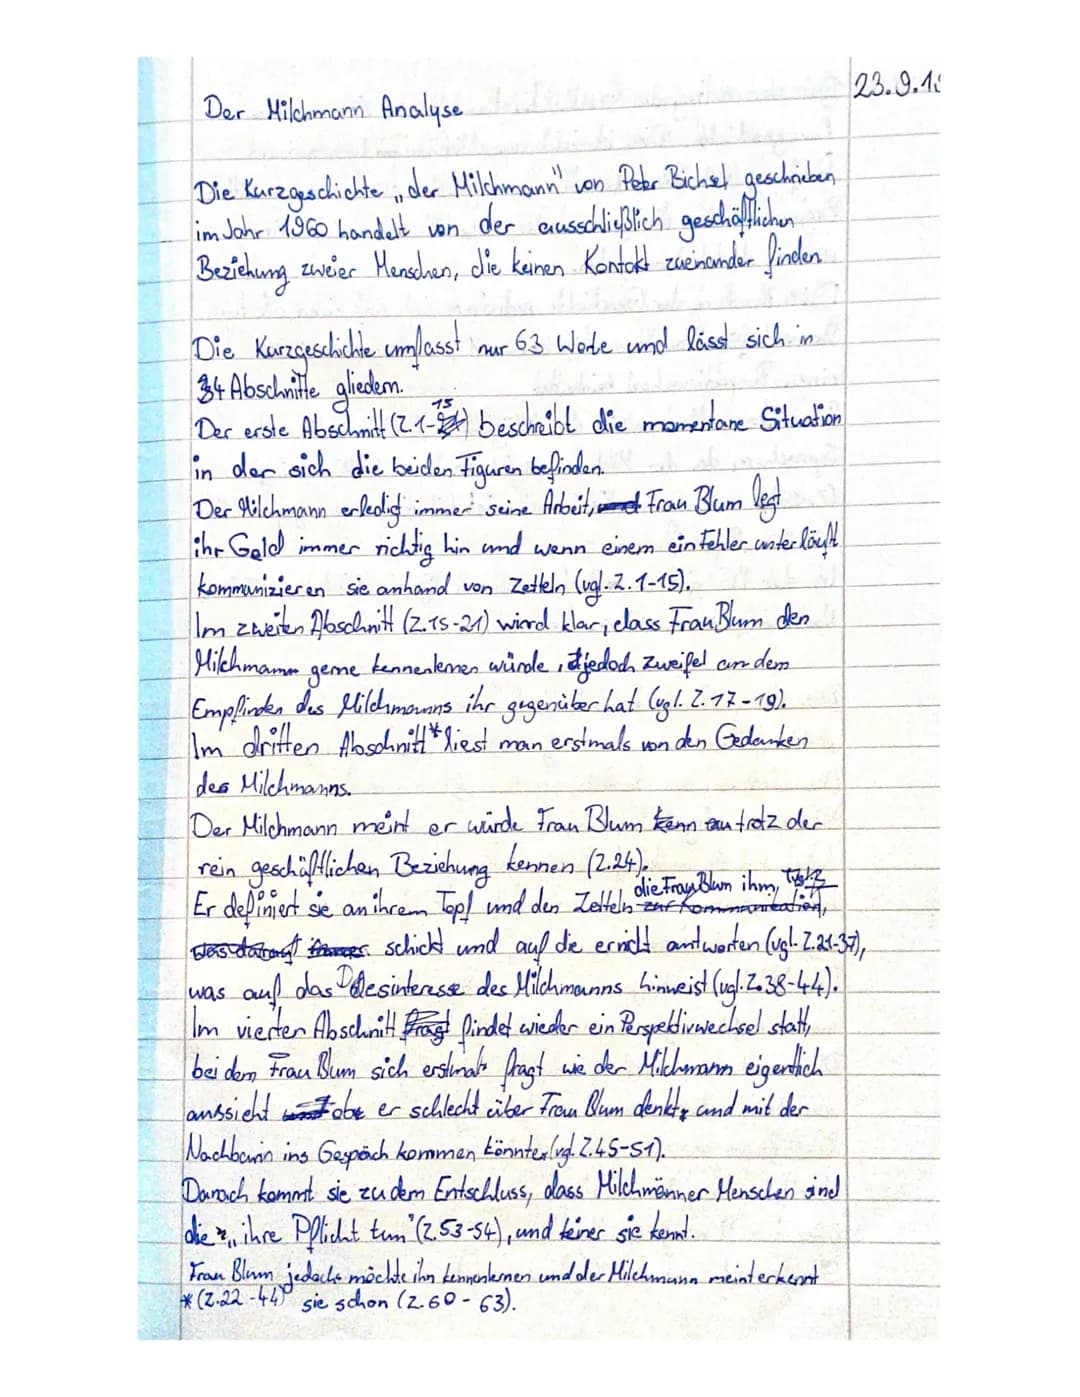 23.9.1
Der Milchmann Analyse
Die Kurzgeschichte „der Milchmann" von Peter Bichsel geschrieben
im Jahr 1960 handelt von der ausschließlich geschäftlichen
Beziehung zweier Menschen, die keinen Kontakt zueinander finden
Die Kurzgeschichte umfasst nur 63 Worte und lässt sich in
4 Abschnitte gliedern.
Der erste Abschnitt (Z.1-15) beschreibt die momentane Situation
in der sich die beiden Figuren befinden.
Der Milchmann erledigt immer seine Arbeit, Frau Blum legt
ihr Geld immer richtig hin und wenn einem ein Fehler unterläuft
kommunizieren sie anhand von Zetteln (vgl. Z. 1-15).
Im zweiten Abschnitt (Z.15-21) wird klar, dass Frau Blum den
Milchmann gerne kennenlernen würde, jedoch Zweifel an dem
Empfinden des Milchmanns ihr gegenüber hat (vgl. Z. 17-19).
Im dritten Abschnitt* liest man erstmals von den Gedanken
des Milchmanns.
Der Milchmann meint er würde Frau Blum trotz der
rein geschäftlichen Beziehung kennen (Z.24).
Er definiert sie an ihrem Topf und den Zetteln die Frau Blum ihm,
schickt und auf die er nicht antworten (vgl. Z.21-37),
was auf das Desinteresse des Milchmanns hinweist (vgl. Z.38-44).
Im vierten Abschnitt findet wieder ein Perspektivwechsel statt,
bei dem Frau Blum sich erstmals fragt wie der Milchmann eigentlich
aussieht ob er schlecht über Frau Blum denkt und mit der
Nachbarin ins Gespäch kommen könnte (vgl. Z.45-51).
Danach kommt sie zu dem Entschluss, dass Milchmänner Menschen sind
die „ihre Pflicht tun" (Z.53-54), und keiner sie kennt.
Frau Blum jedoch möchte ihn kennenlernen und der Milchmann meint er kennt
*(Z.22-44) sie schon (Z.60-63).